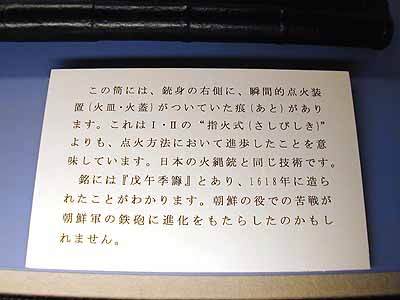 この筒には、銃身の右側に、瞬間的点火装
置(火皿・火蓋)がついていた痕(あと)があり
ます。これはⅠ・Ⅱの“指火式(さしびしき)”
よりも、点火方法において進歩したことを意
味しています。日本の火縄銃と同じ技術です。
銘には『戊午季 』とあり、1618年に造ら
れたことがわかります。朝鮮の役での苦戦が
朝鮮軍の鉄砲に進化をもたらしたのかもし
れません。